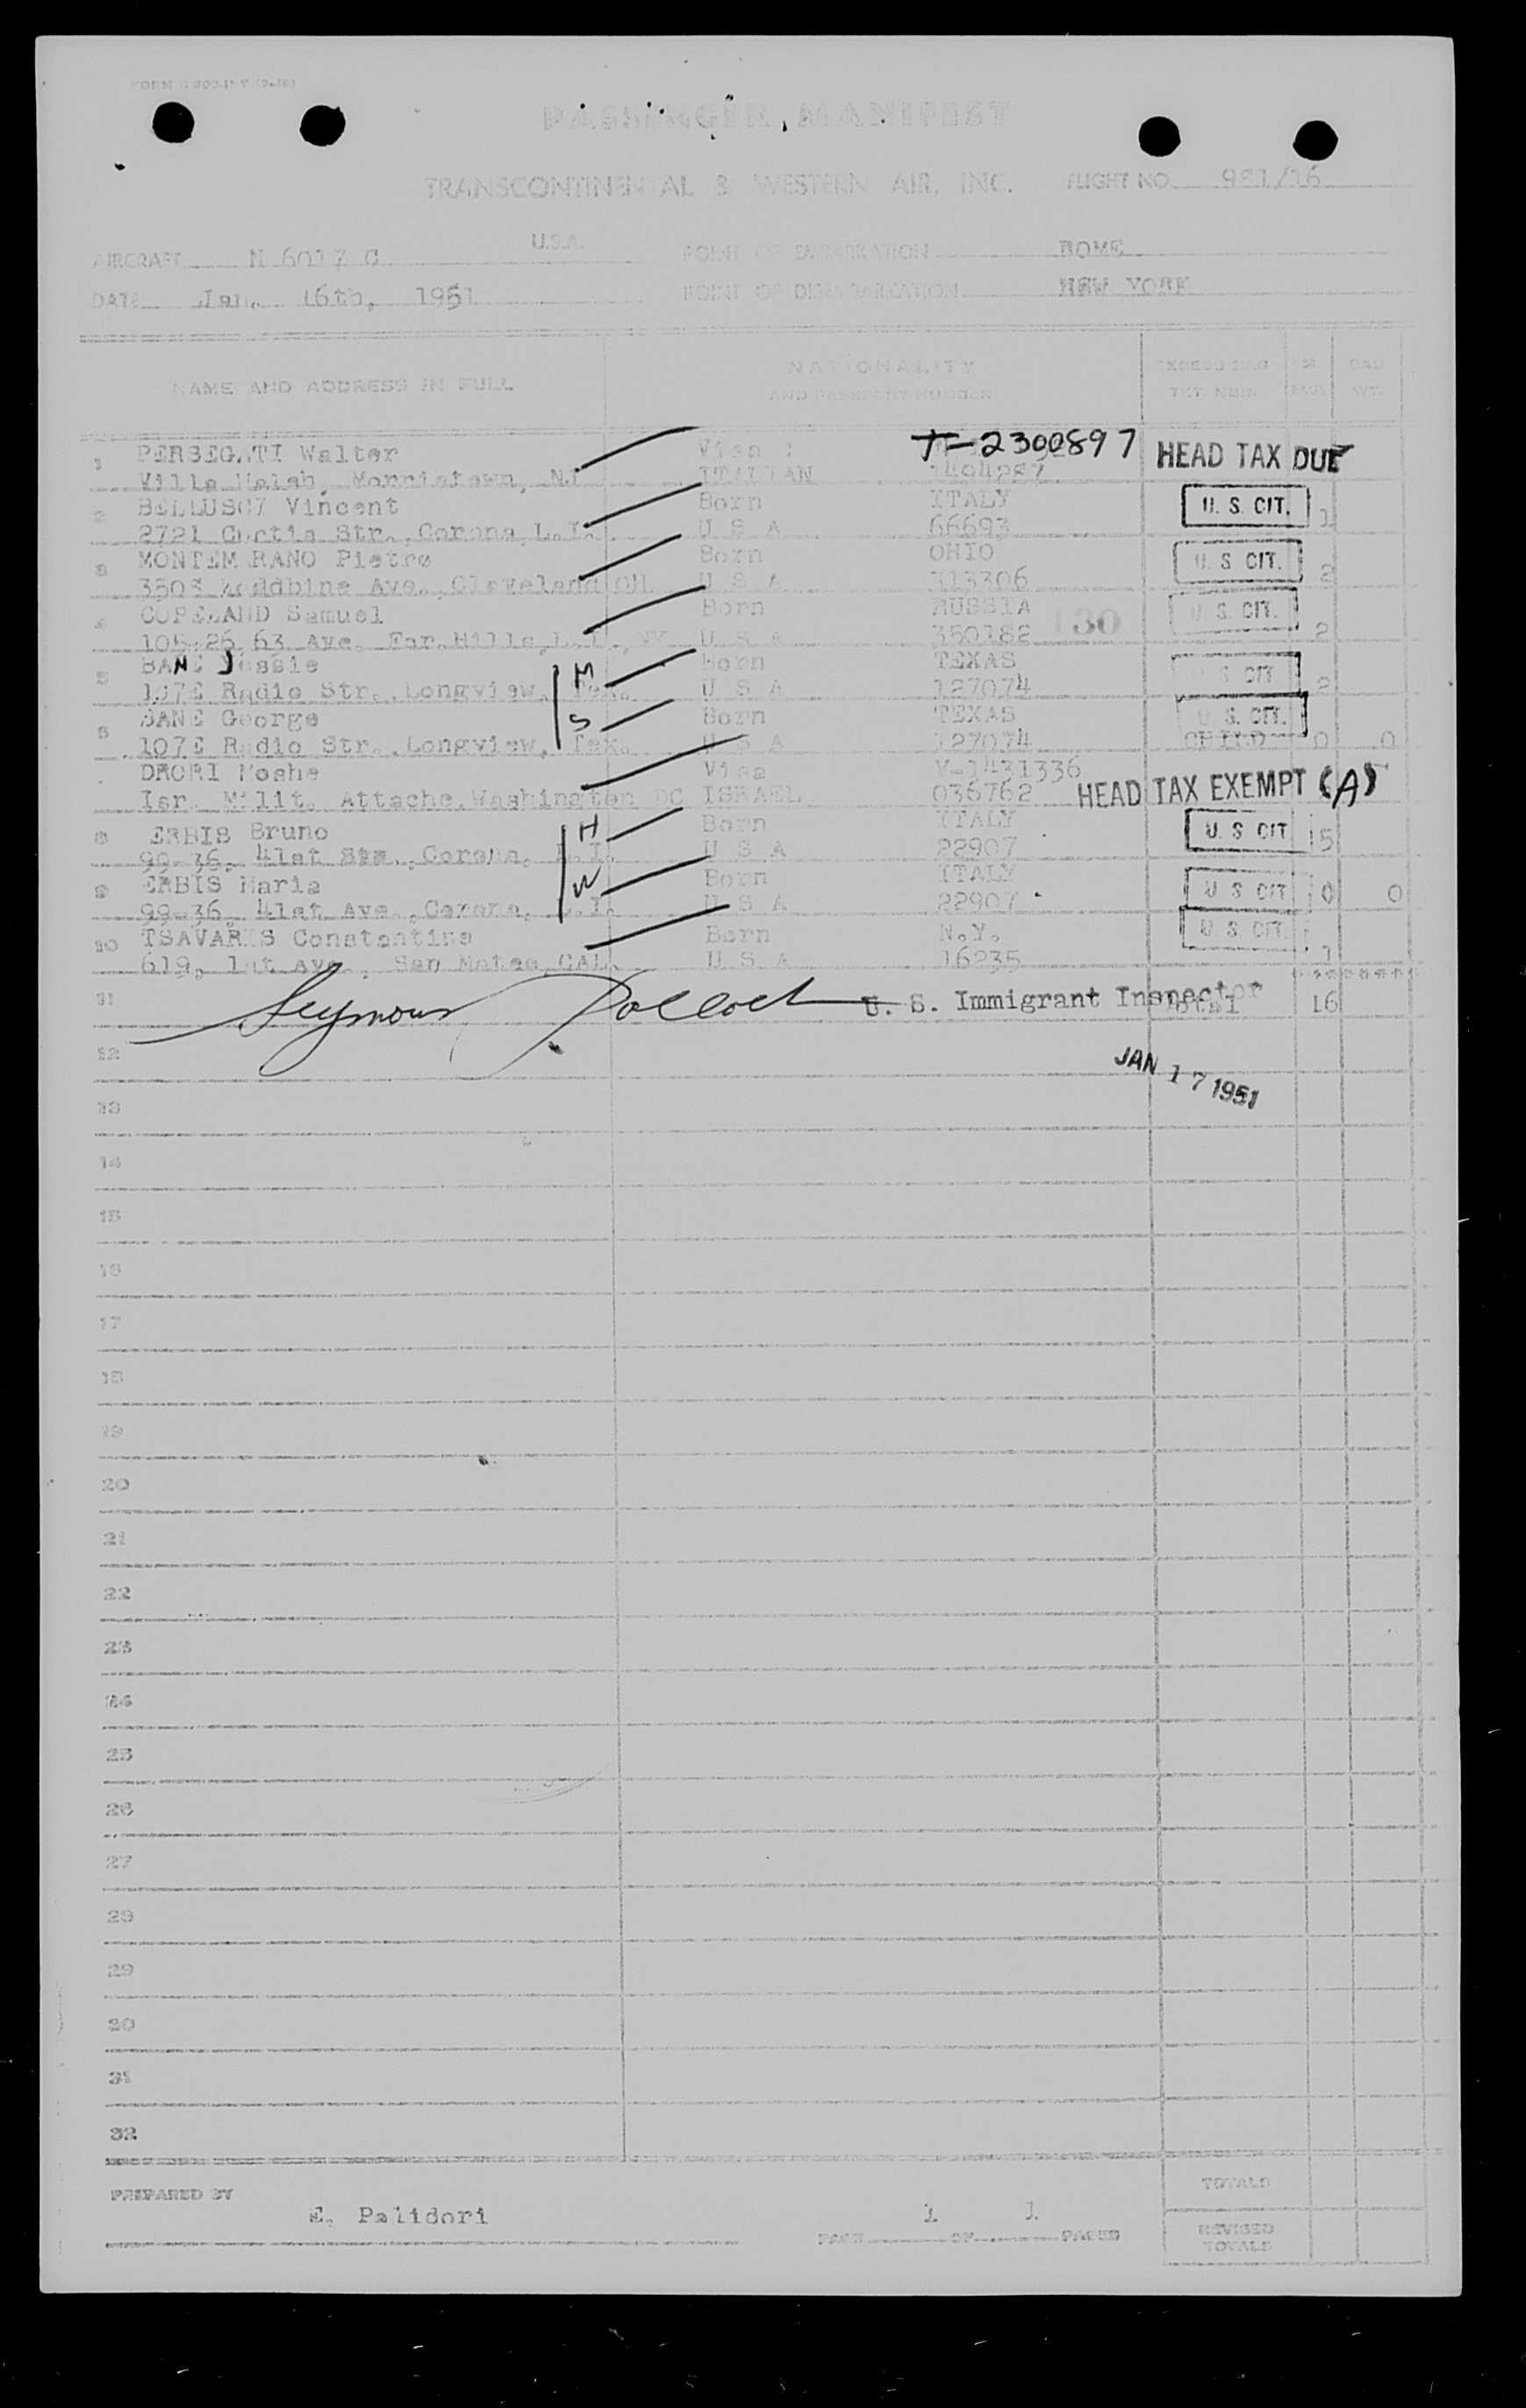 PASSENGER MANIFEST
TRANSCONTINENTAL & WESTERN AIR, INC. FLIGHT NO. 921/16
AIRCRAFT N 6017 C U.S.A. POINT OF EMBARKATION ROME
DATE Jan. 16th, 1951 POINT OF DISEMBARKATION NEW YORK
NAME AND ADDRESS IN FULL NATIONALITY AND PASSPORT NUMBER EXCESS BAG TKT. NBR. BAG WT.
1 PERSEGATI Walter Visa : T-2300897 HEAD TAX DUE
Villa Walsh, Morristown, NJ ITALIAN
2 Vincent Born ITALY U. S. CIT. 1
2721 Curtis Str., Corona, L.I. U S A 66693
3 Pietro Born OHIO U. S. CIT. 2
Ave., Cleveland OH. U S A 313306
4 COPELAND Samuel Born RUSSIA U. S. CIT.
105-26 63 Ave. For. Hills, L.I., NY U S A 350182 130 2
5 BANE Jessie M Born TEXAS U. S. CIT.
107E Radio Str., Longview, Tex. U S A 127074 2
6 BANE George S Born TEXAS U. S. CIT.
107E Radio Str., Longview, Tex. U S A 127074 CHILD 0 0
DRORI Moshe Visa V-1431336
Isr. Milit. Attache, Washington DC ISRAEL 036762 HEAD TAX EXEMPT (A)
8 ERBIS Bruno H Born ITALY U. S. CIT. 5
99-36, 41st Corona, L.I. U S A 22907
9 ERBIS Maria W Born ITALY U. S. CIT. 0 0
99-36, 41st Ave., Corona, L.I. U S A 22907
10 TSAVARIS Constantine Born N.Y. U. S. CIT.
619, 1st Ave., San Mateo, CAL. U S A 16235 1
11 Seymour Pollock U. S. Immigrant Inspector Total 16
12
JAN 17 1951
13
14
15
16
17
18
19
20
21
22
23
24
25
26
27
28
29
30
31
32
TOTALS
PREPARED BY E. Palidori PAGE 1 OF 1 PAGES
REVISED TOTALS